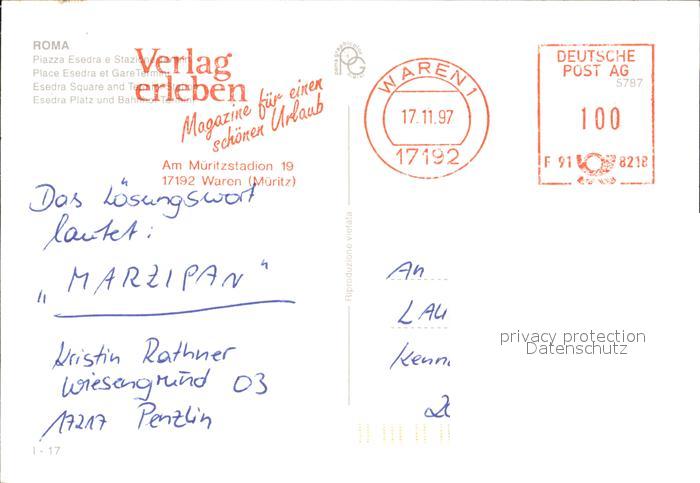 ROMA
Piazza Esedra e Stazione
Place Esedra et Gare Termini
Esedra Square and
Esedra Platz und
Verlag
erleben
Magazine für einen
schönen Urlaub
Am Müritzstadion 19
17192 Waren (Müritz)
WAREN 1
17.11.97
17192
DEUTSCHE
POST AG
5787
100
F 91 8218
Das Lösungswort
lautet:
„MARZIPAN"
Kristin Rathner
Wiesengrund 03
17217 Penzlin
I - 17
Riproduzione vietata
An
LAU
Kenn.
privacy protection
Datenschutz